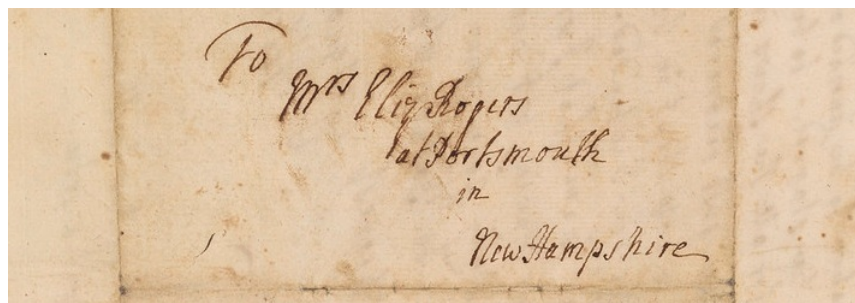 To
Mrs Eliz Rogers
at Portsmouth
in
New Hampshire